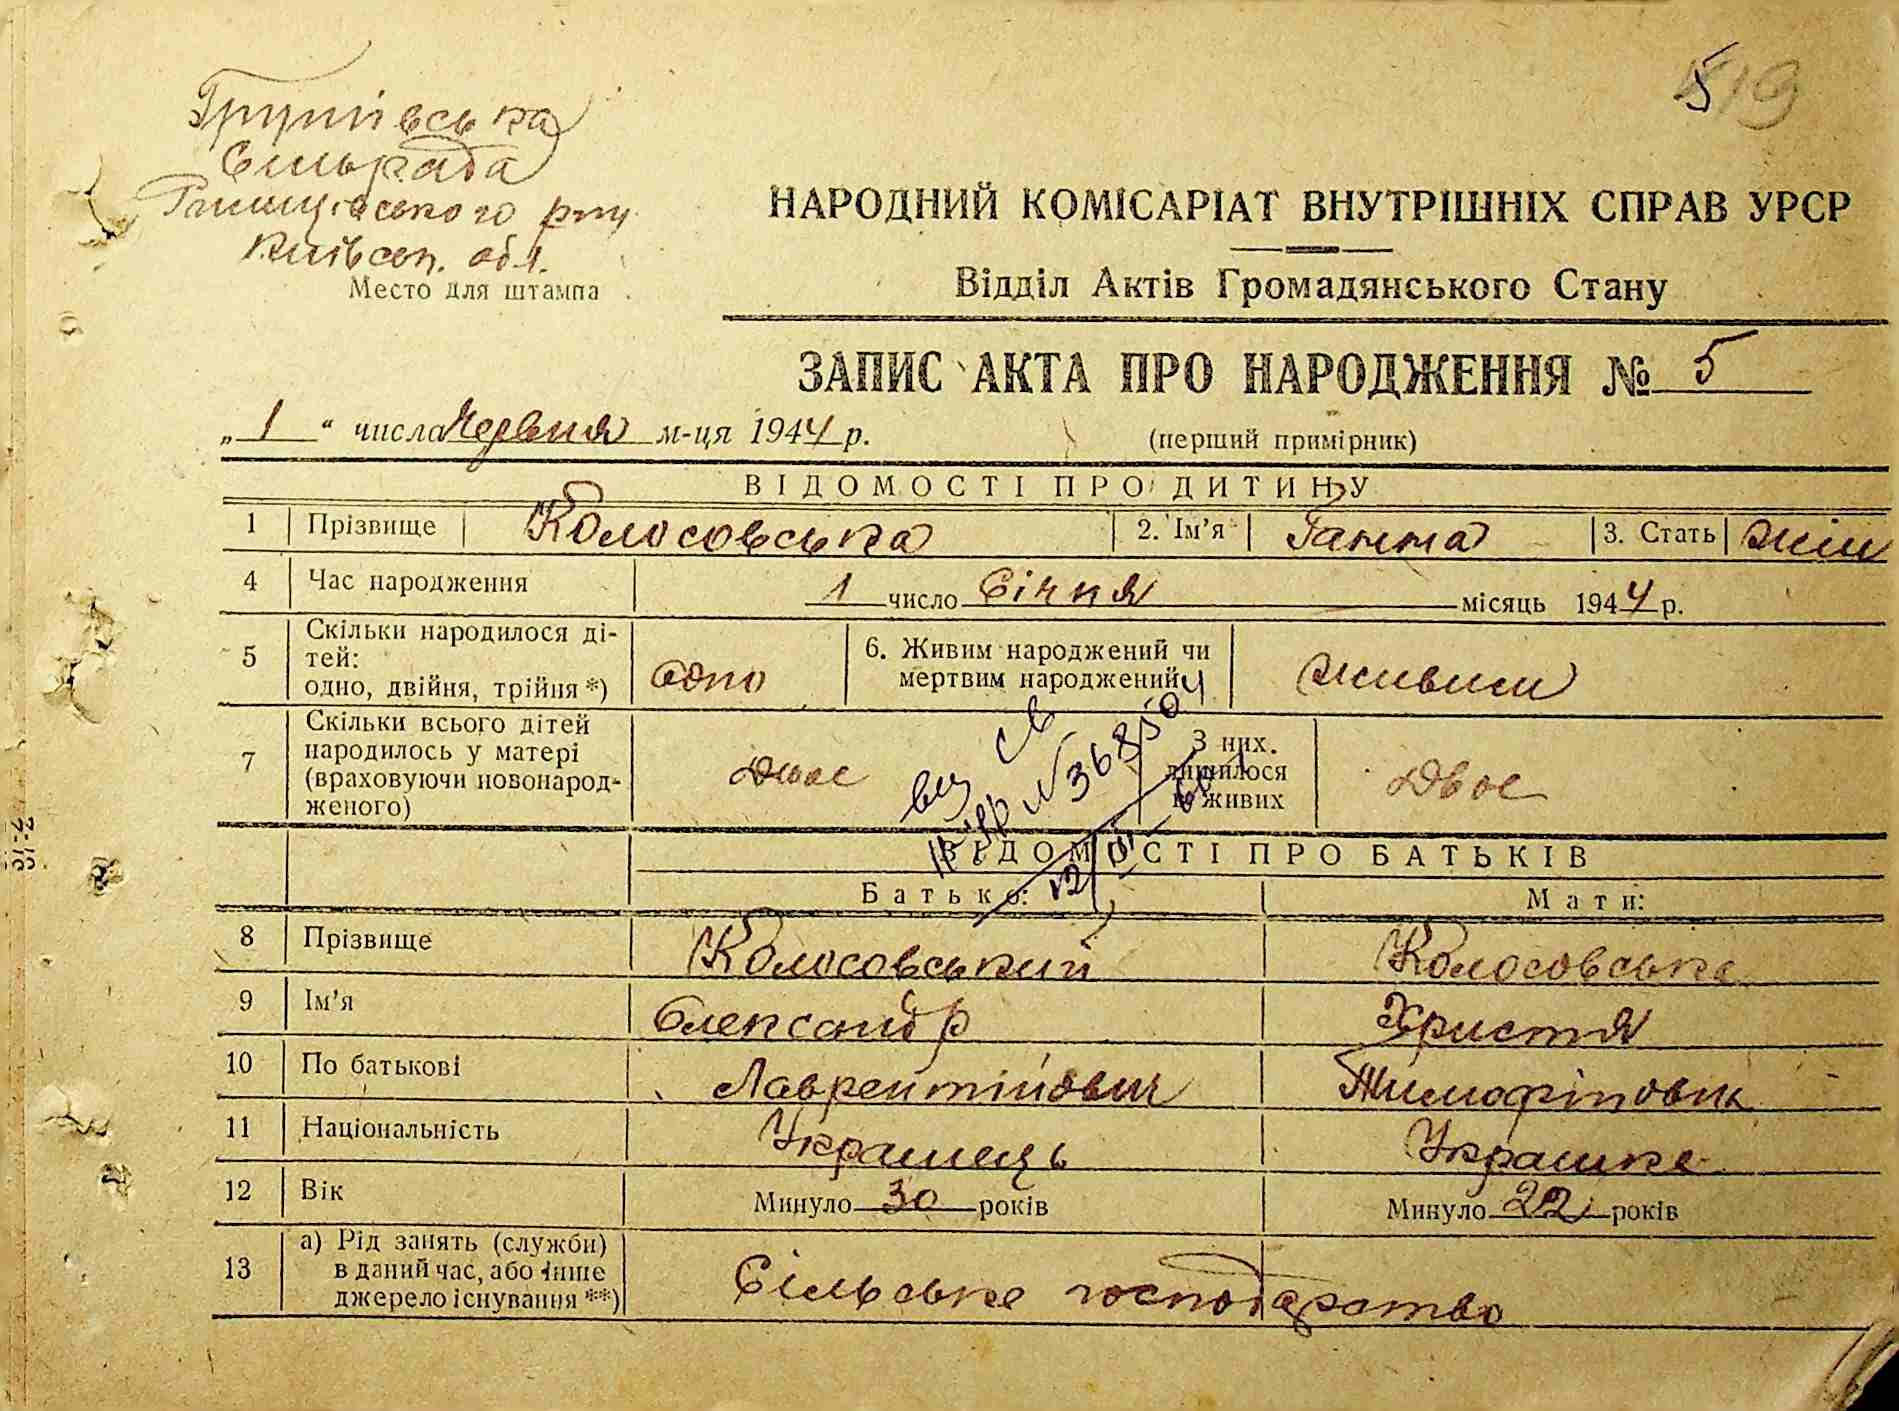 Грушівська
Сільрада
Ржищівського р-ну
Київськ. обл.
Место для штампа
5 19
НАРОДНИЙ КОМІСАРІАТ ВНУТРІШНІХ СПРАВ УРСР
Відділ Актів Громадянського Стану
ЗАПИС АКТА ПРО НАРОДЖЕННЯ № 5
„ 1 “ числа Червня м-ця 1944 р. (перший примірник)
ВІДОМОСТІ ПРО ДИТИНУ
1 Прізвище Колосовська 2. Ім’я Ганна 3. Стать жін
4 Час народження 1 число Січня місяць 1944 р.
5 Скільки народилося ді-
тей:
одно, двійня, трійня *) Одно 6. Живим народжений чи
мертвим народжений живим
7 Скільки всього дітей
народилось у матері
(враховуючи новонарод-
женого) Двоє З них
лишилося
в живих Двоє
№ 36850
ВІДОМОСТІ ПРО БАТЬКІВ
Батько: Мати:
8 Прізвище Колосовський Колосовська
9 Ім’я Олександр Христя
10 По батькові Лаврентійович Тимофіївна
11 Національність Українець Українка
12 Вік Минуло 30 років Минуло 22 років
13 а) Рід занять (служби)
в даний час, або інше
джерело існування **) Сільське господарство